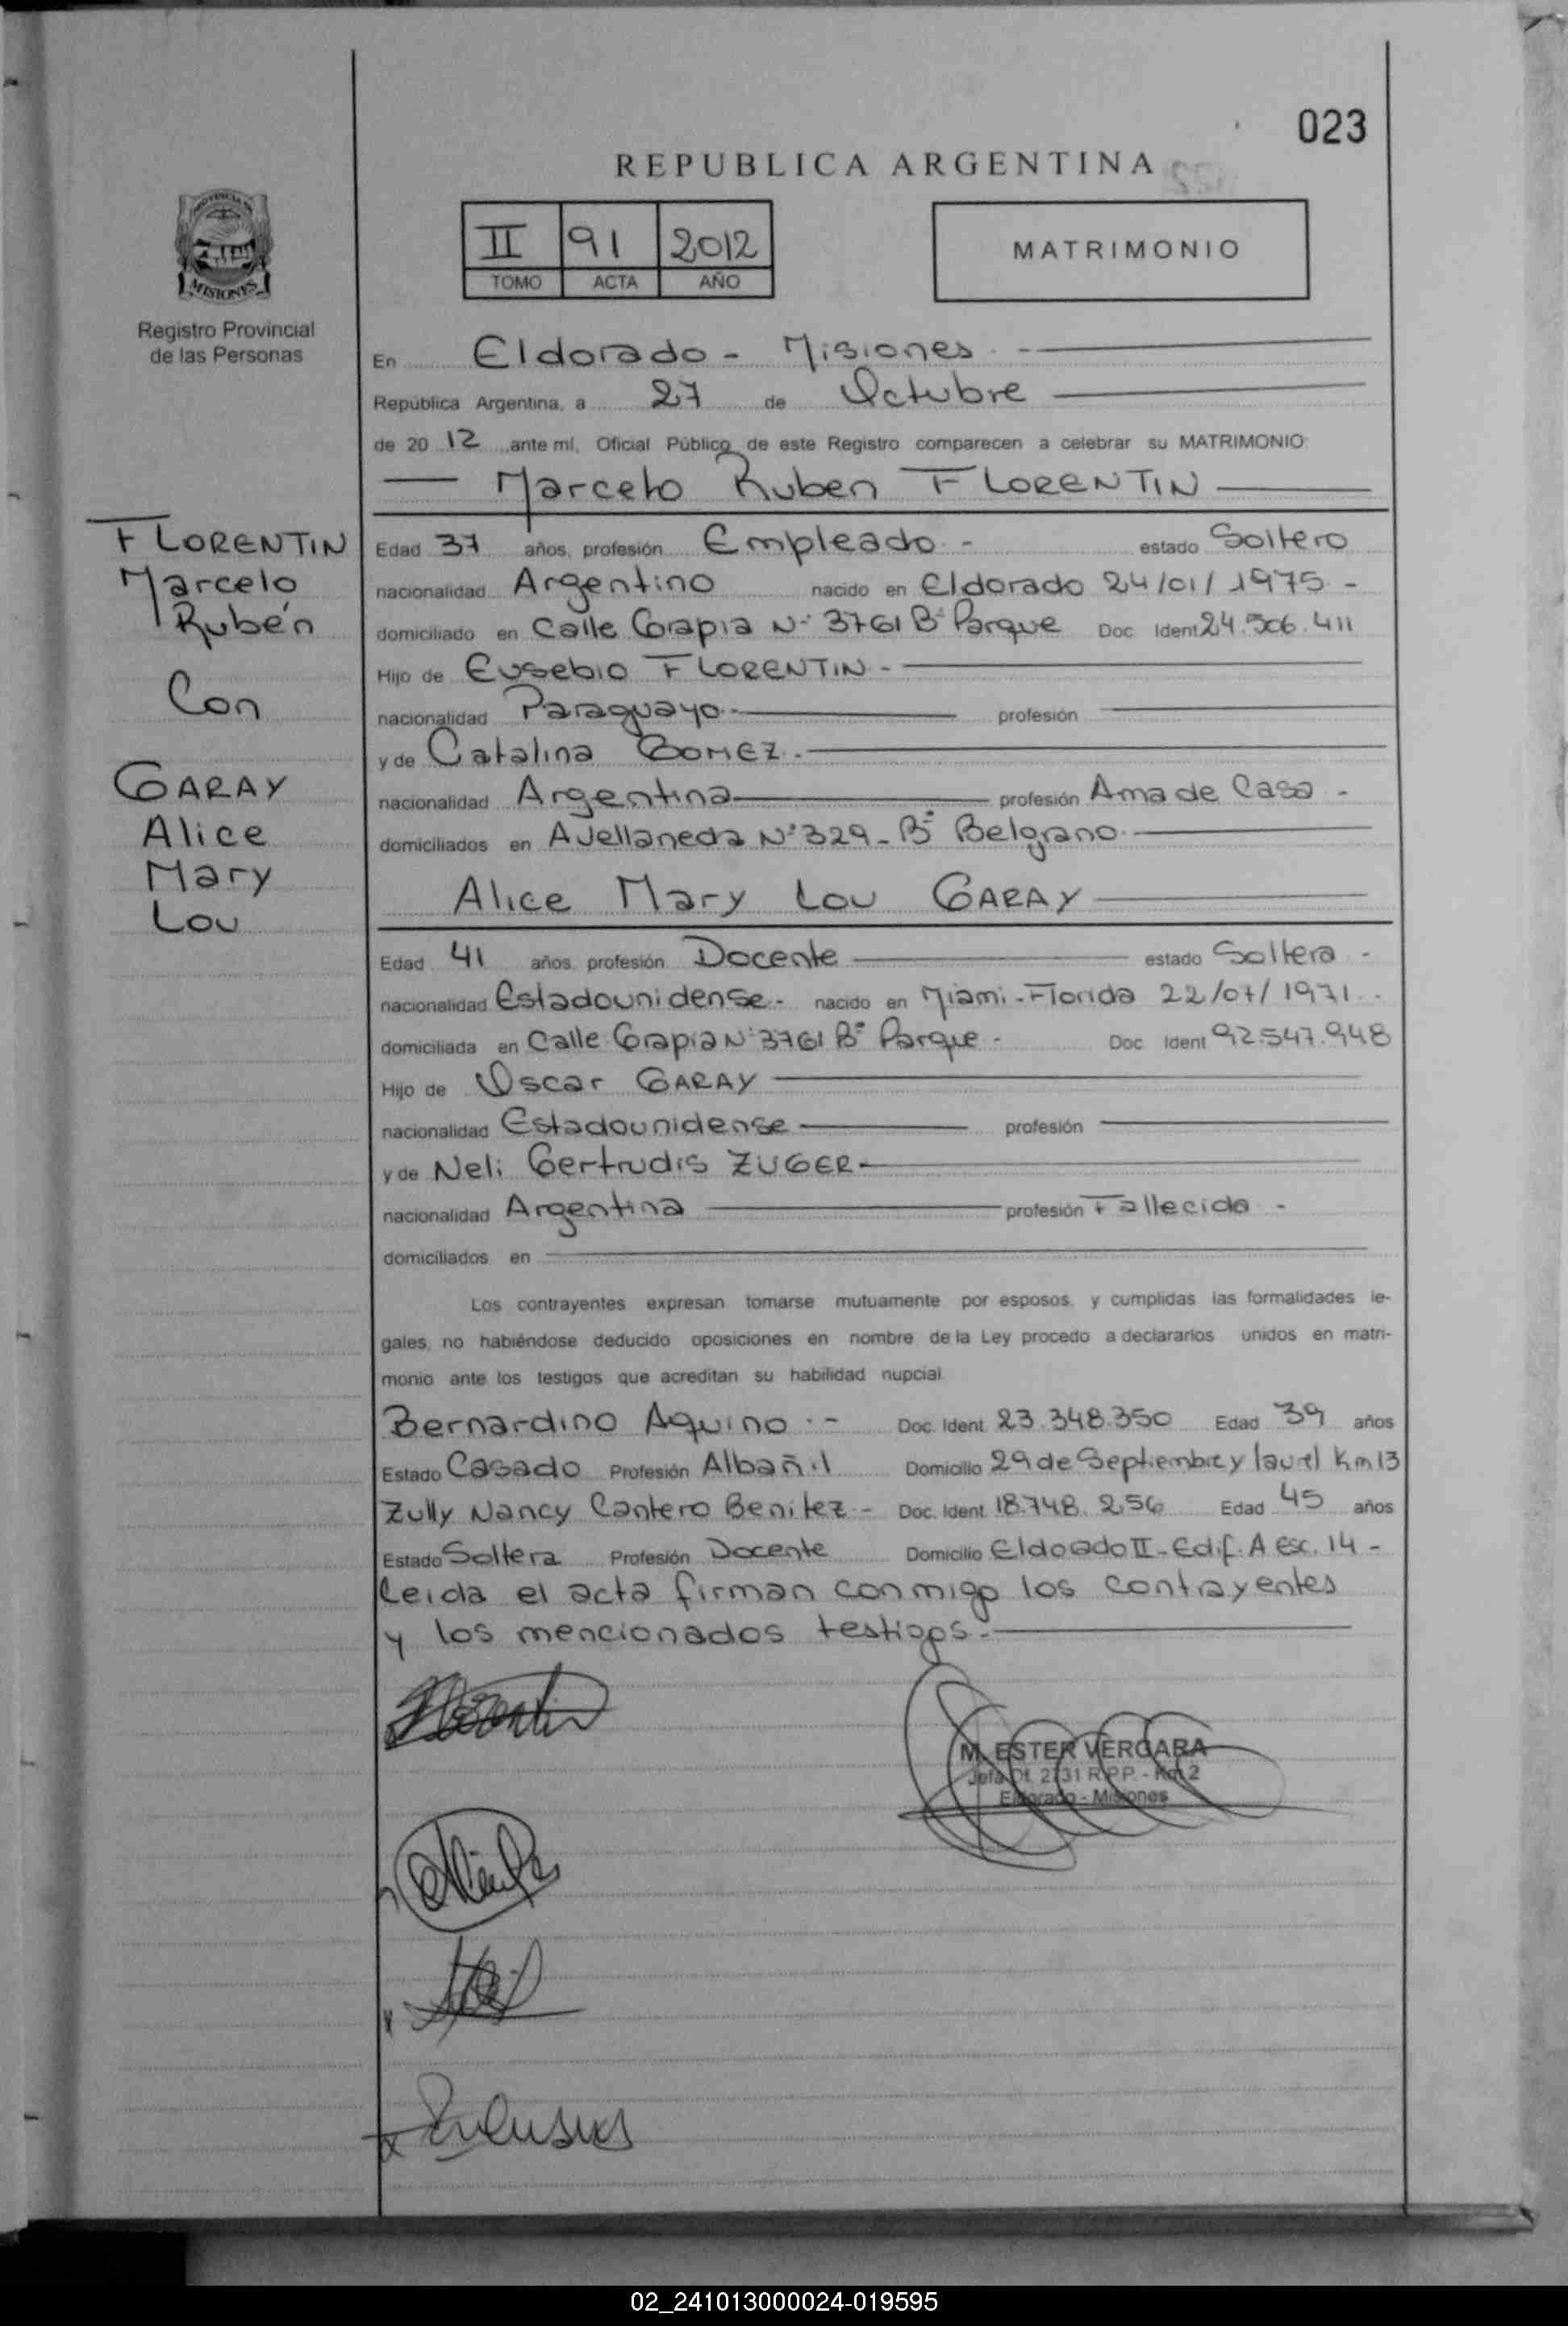 023
REPUBLICA ARGENTINA
PROVINCIA DE
MISIONES
Registro Provincial
de las Personas
II 91 2012
TOMO ACTA AÑO
MATRIMONIO
En Eldorado - Misiones. -
República Argentina, a 27 de Octubre
de 20 12 ante mí, Oficial Público de este Registro comparecen a celebrar su MATRIMONIO:
Marcelo Ruben FLORENTIN
FLORENTIN
Marcelo
Rubén
Con
GARAY
Alice
Mary
Lou
Edad 37 años, profesión Empleado - estado Soltero
nacionalidad Argentino nacido en Eldorado 24/01/1975 -
domiciliado en Calle Grapia Nº 3761 Bº Parque Doc. Ident 24.506.411
Hijo de Eusebio FLORENTIN -
nacionalidad Paraguayo profesión
y de Catalina GOMEZ.
nacionalidad Argentina profesión Ama de Casa -
domiciliados en Avellaneda Nº 329 - Bº Belgrano
Alice Mary Lou GARAY
Edad 41 años, profesión Docente estado Soltera -
nacionalidad Estadounidense - nacido en Miami - Florida 22/07/1971.
domiciliada en Calle Grapia Nº 3761 Bº Parque - Doc. Ident 92.547.948
Hijo de Oscar GARAY
nacionalidad Estadounidense profesión
y de Neli Gertrudis ZUGER
nacionalidad Argentina profesión Fallecida -
domiciliados en
Los contrayentes expresan tomarse mutuamente por esposos, y cumplidas las formalidades le-
gales, no habiéndose deducido oposiciones en nombre de la Ley procedo a declararlos unidos en matri-
monio ante los testigos que acreditan su habilidad nupcial.
Bernardino Aquino. - Doc. Ident. 23.348.350 Edad 39 años
Estado Casado Profesión Albañil Domicilio 29 de Septiembre y laurel Km 13
Zully Nancy Cantero Benitez - Doc. Ident. 18.748.256 Edad 45 años
Estado Soltera Profesión Docente Domicilio Eldoado II - Edif. A Esc. 14 -
Leida el acta firman conmigo los contrayentes
y los mencionados testigos. -
M. ESTER VERGARA
Jefa Of. 2731 R.P.P. - Km 2
Eldorado - Misiones
02_241013000024-019595